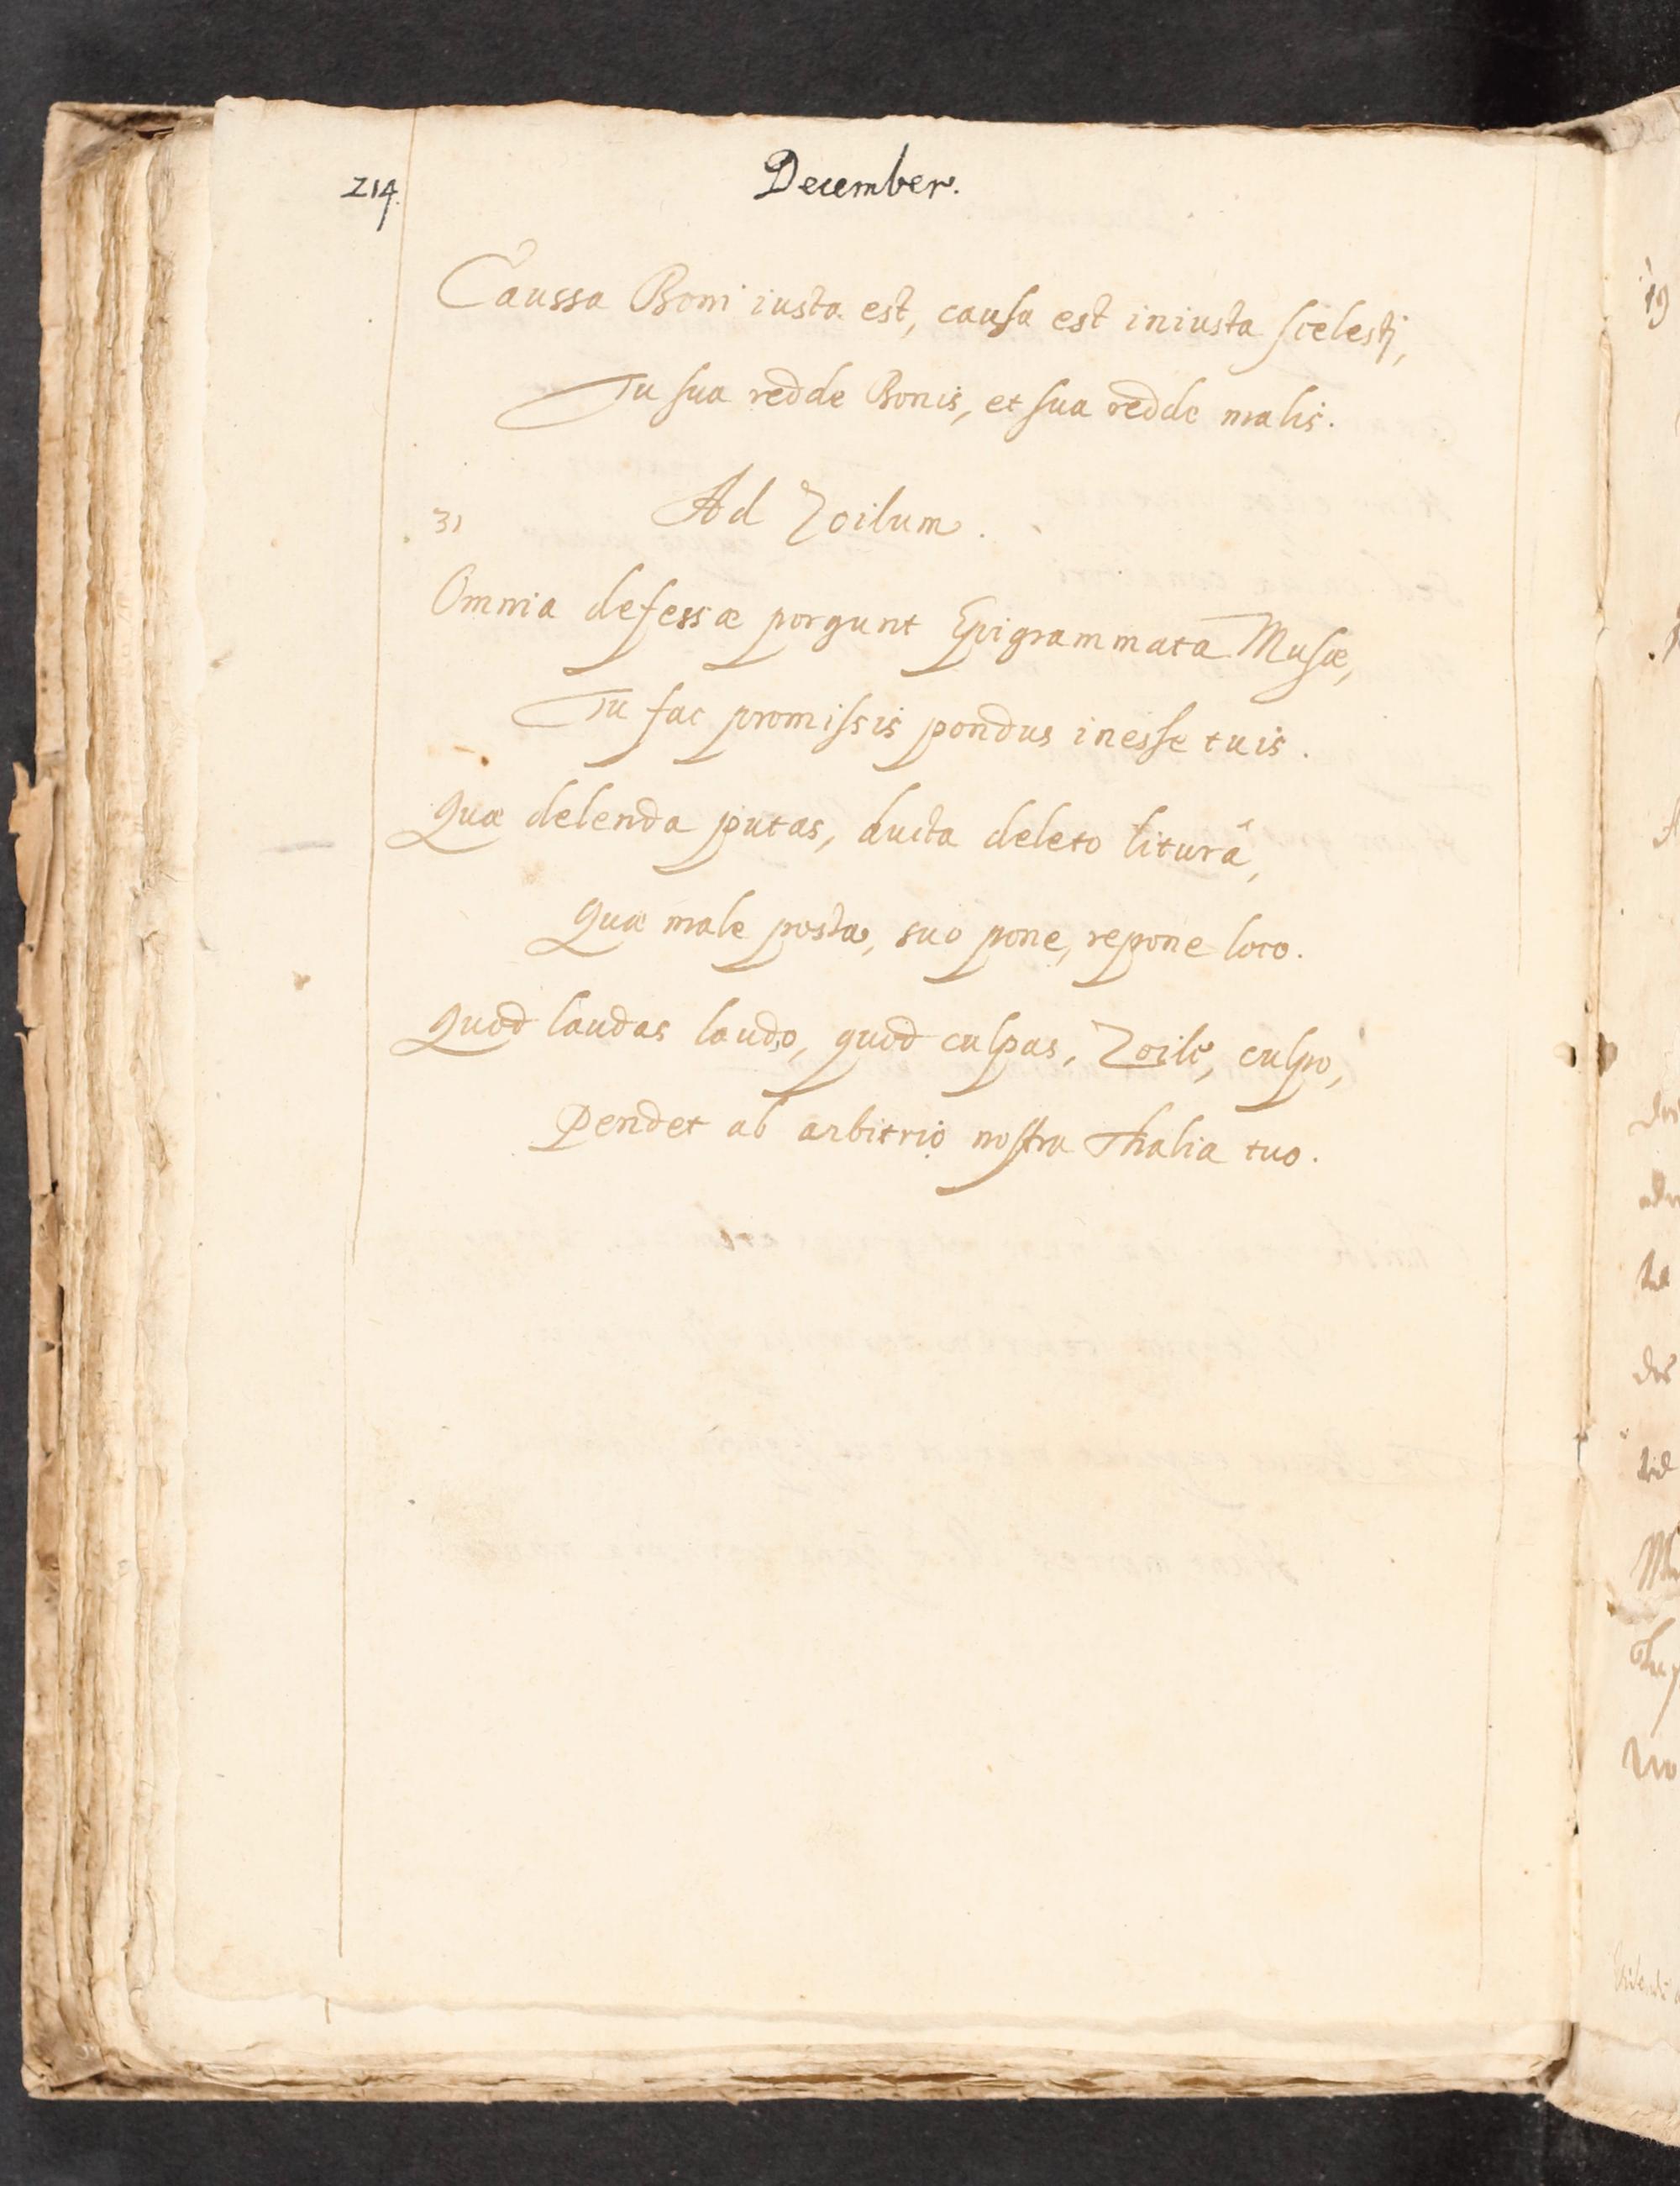 214.
December.
Caussa Boni iusta est, causa est iniusta scelestj,
Tu sua redde Bonis, et sua redde malis.
31
Ad Zoilum.
Omnia defessæ porgunt Epigrammata Musæ,
Tu fac promissis pondus inesse tuis.
Quæ delenda putas, ducta deleto liturâ,
Quæ male posta, suo pone, repone loco.
Quod laudas laudo, quod culpas, Zoile, culpo,
Pendet ab arbitrio nostra Thalia tuo.
19